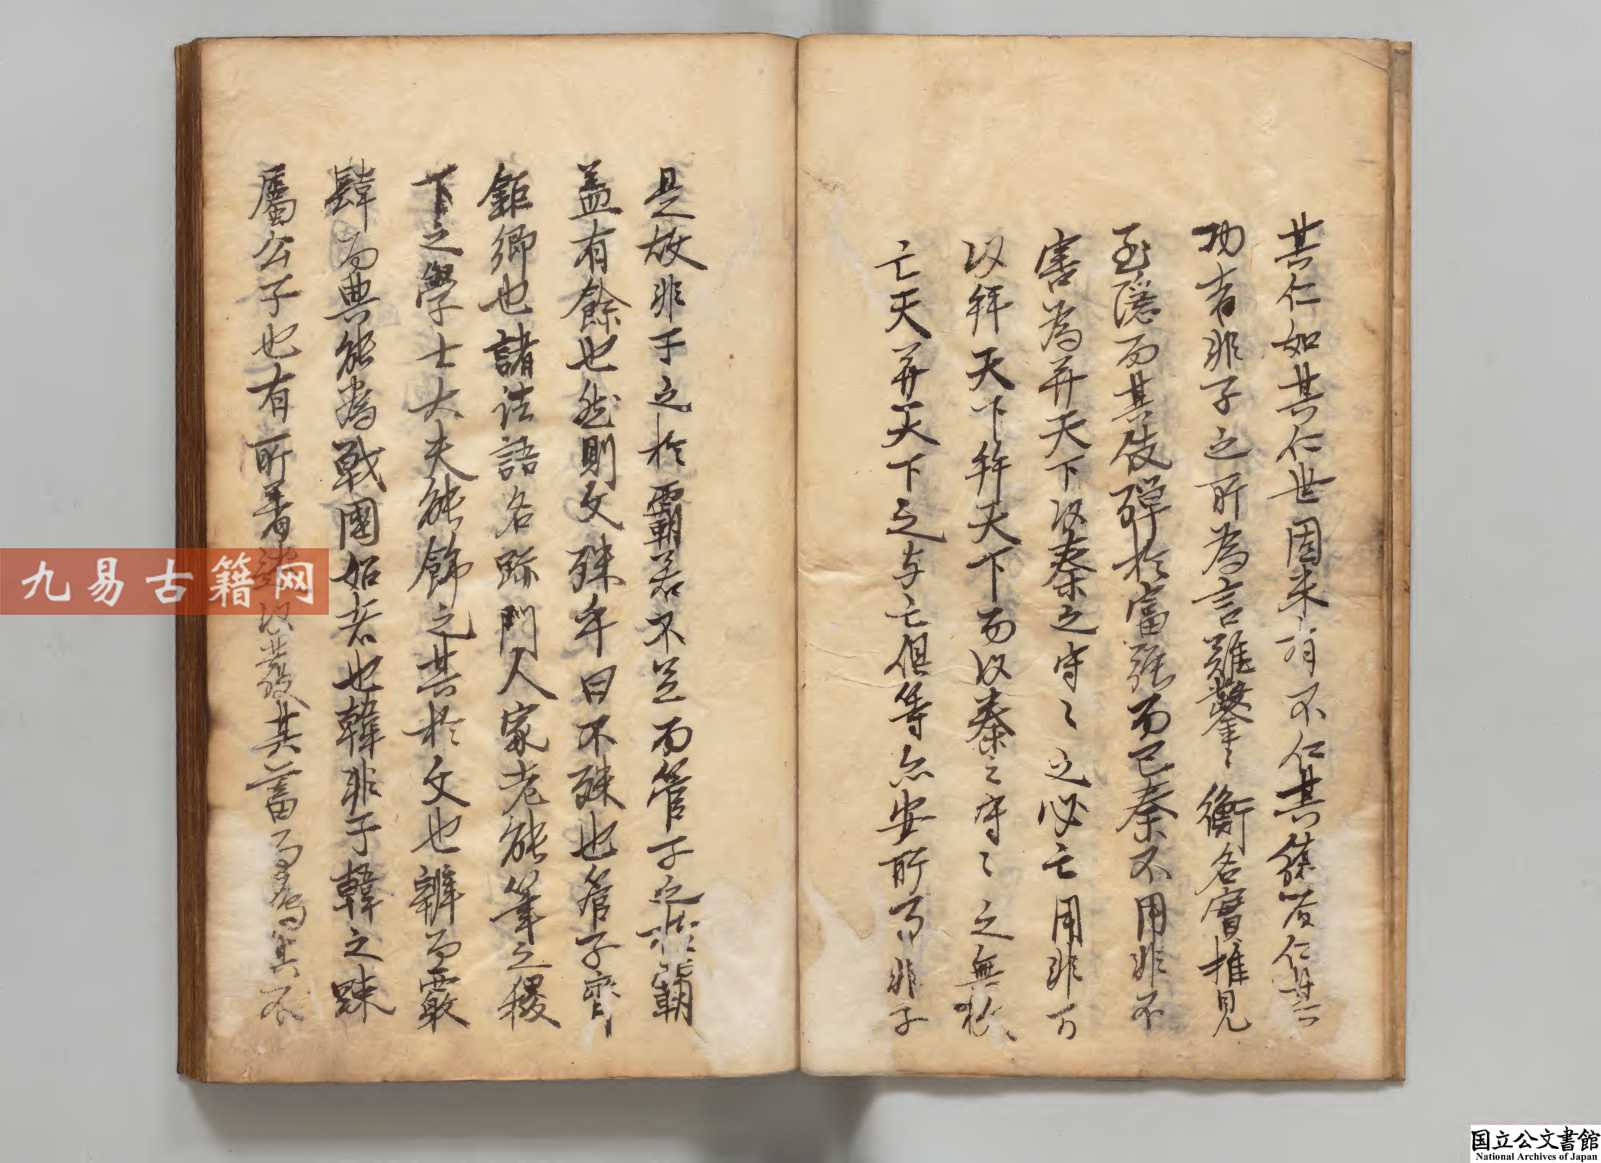 其仁如其仁世固未有不仁其
功者非子之所為言雖鑿〻衡名實推見
至隱而其伎殫於富強而已秦不用非不
害為并天下以秦之守〻之必亡用非可
以并天下并天下而以秦之守〻之無救
亡天并天下之與亡俱等亦安所事非子
是故非子之於霸若不足而管子之於霸
蓋有餘也然則文殊乎曰不殊也管子齊
鉅卿也諸法語名跡門人家老能筆之稷
下之學士大夫能飾之其於文也辨而覈
肆而典能為戰國始者也韓非子韓之疎
屬公子也有所著述以發其蓄而為其不
九易古籍网
国立公文書館
National Archives of Japan